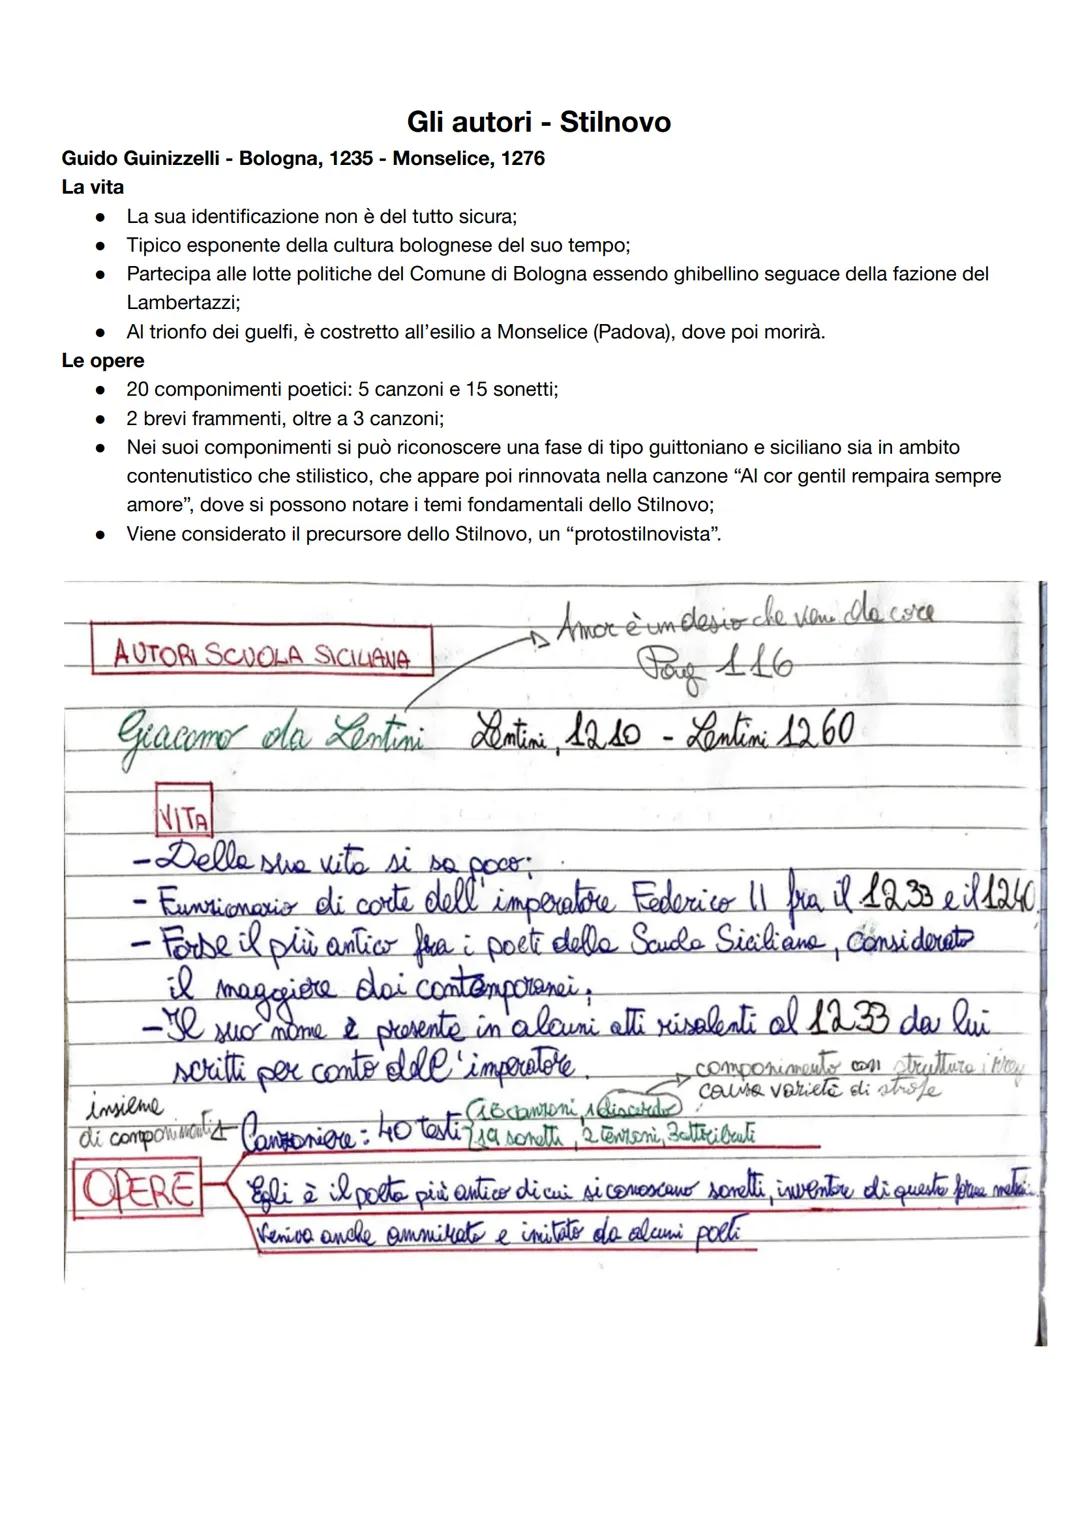 Gli autori - Stilnovo
Guido Guinizzelli - Bologna, 1235 - Monselice, 1276
La vita
● La sua identificazione non è del tutto sicura;
● Tipico esponente della cultura bolognese del suo tempo;
● Partecipa alle lotte politiche del Comune di Bologna essendo ghibellino seguace della fazione del
Lambertazzi;
● Al trionfo dei guelfi, è costretto all'esilio a Monselice (Padova), dove poi morirà.
Le opere
● 20 componimenti poetici: 5 canzoni e 15 sonetti;
● 2 brevi frammenti, oltre a 3 canzoni;
● Nei suoi componimenti si può riconoscere una fase di tipo guittoniano e siciliano sia in ambito
contenutistico che stilistico, che appare poi rinnovata nella canzone “Al cor gentil rempaira sempre
amore”, dove si possono notare i temi fondamentali dello Stilnovo;
● Viene considerato il precursore dello Stilnovo, un “protostilnovista”.
Amor è un desio che ven da core
Pag 116
AUTORI SCUOLA SICILIANA
Giacomo da Lentini Lentini, 1210 - Lentini 1260
VITA
- Della sua vita si sa poco;
- Funzionario di corte dell'imperatore Federico II fra il 1233 e il 1240
- Forse il più antico fra i poeti della Scuola Siciliana, considerato
il maggiore dai contemporanei;
- Il suo nome è presente in alcuni atti risalenti al 1233 da lui
scritti per conto dell'imperatore.
componimento con struttura
causa varietà di strofe
insieme
di componimenti
Canzoniere: 40 testi
16 canzoni, 1 discordo
19 sonetti, 2 tenzoni, 3 attribuiti
OPERE
Egli è il poeta più antico di cui si conoscano sonetti, inventore di questa forma
Veniva anche ammirato e imitato da alcuni poeti